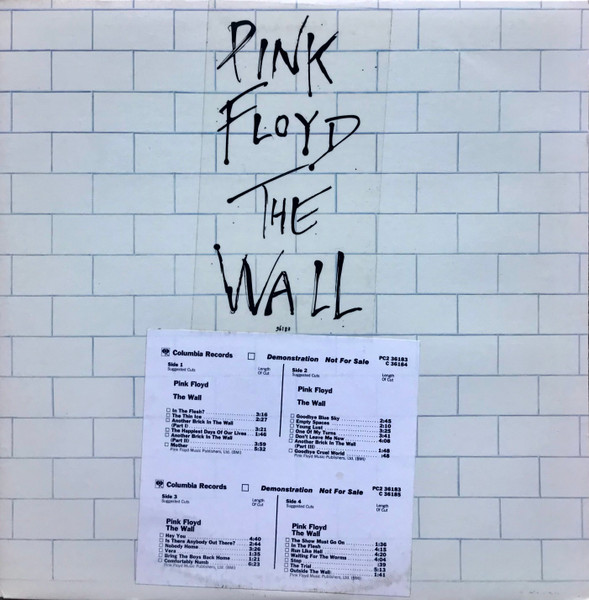 PINK
FLOYD
THE
WALL
36183
Columbia Records
Demonstration Not For Sale
PC2 36183
C 36184
Side 1
Suggested Cuts
Length
Of Cut
Pink Floyd
The Wall
In The Flesh? 3:16
The Thin Ice 2:27
Another Brick In The Wall
(Part I) 3:21
The Happiest Days Of Our Lives 1:46
Another Brick In The Wall
(Part II) 3:59
Mother 5:32
Pink Floyd Music Publishers, Ltd. (BMI)
Side 2
Suggested Cuts
Length
Of Cut
Pink Floyd
The Wall
Goodbye Blue Sky 2:45
Empty Spaces 2:10
Young Lust 3:25
One Of My Turns 3:41
Don't Leave Me Now 4:08
Another Brick In The Wall
(Part III) 1:48
Goodbye Cruel World :48
Pink Floyd Music Publishers, Ltd. (BMI)
Columbia Records
Demonstration Not For Sale
PC2 36183
C 36185
Side 3
Suggested Cuts
Length
Of Cut
Pink Floyd
The Wall
Hey You 4:40
Is There Anybody Out There? 2:44
Nobody Home 3:26
Vera 1:35
Bring The Boys Back Home 1:21
Comfortably Numb 6:23
Pink Floyd Music Publishers, Ltd. (BMI)
Side 4
Suggested Cuts
Length
Of Cut
Pink Floyd
The Wall
The Show Must Go On 1:36
In The Flesh 4:15
Run Like Hell 4:20
Waiting For The Worms 4:04
Stop :39
The Trial 5:13
Outside The Wall 1:41
Pink Floyd Music Publishers, Ltd. (BMI)